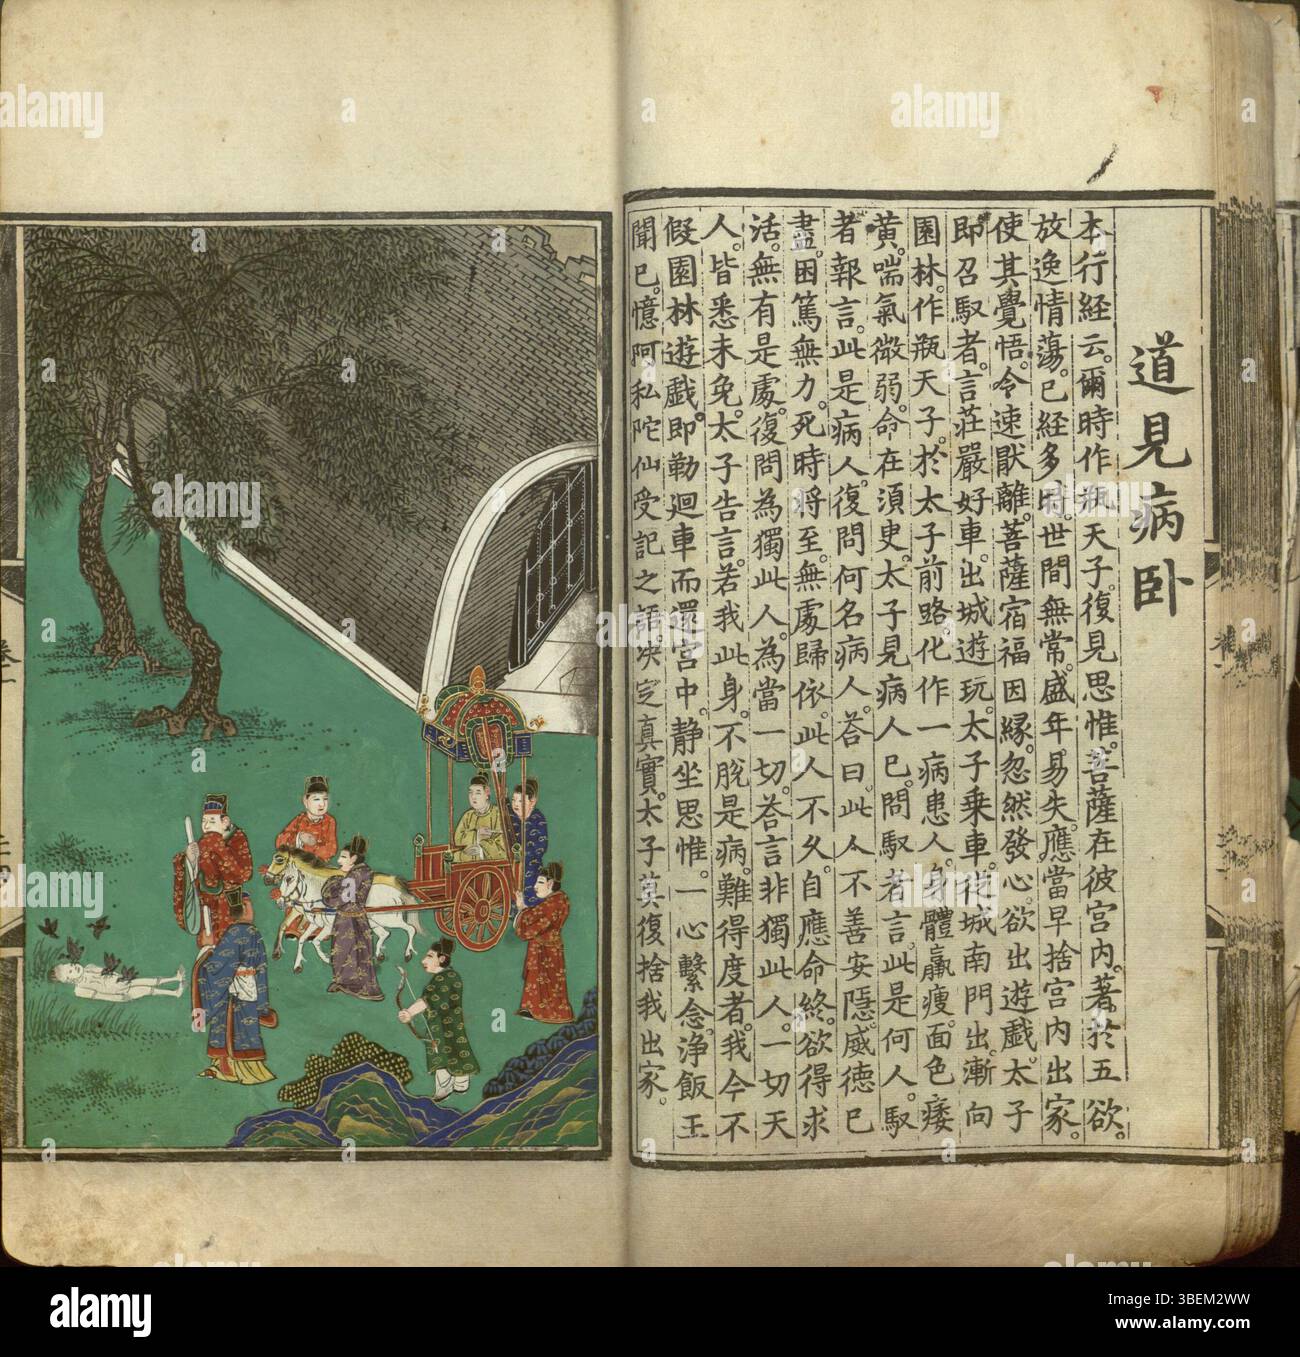 道見病卧
本行經云。爾時作瓶天子。復見思惟。菩薩在彼宮內。著於五欲。
放逸情蕩。已經多時。世間無常。盛年易失。應當早捨宮內出家。
使其覺悟。令速厭離。菩薩宿福因緣。忽然發心。欲出遊戲。太子
即召馭者。言莊嚴好車。出城遊玩。太子乘車。從城南門出。漸向
園林。作瓶天子。於太子前路。化作一病患人。身體羸瘦。面色痿
黃。喘氣微弱。命在須臾。太子見病人已。問馭者言。此是何人。馭
者報言。此是病人。復問何名病人。答曰。此人不善安隱。威德已
盡。困篤無力。死時將至。無處歸依。此人不久。自應命終。欲得求
活。無有是處。復問為獨此人。為當一切。答言非獨此人。一切天
人。皆悉未免。太子告言。若我此身。不脫是病。難得度者。我今不
假園林遊戲。即勒迴車而還宮中。靜坐思惟。一心繫念。淨飯王
聞已。憶阿私陀仙受記之語。決定真實。太子莫復捨我出家。
卷一
alamy
a
alamy
a
a
alamy
a
alamy
a
a
alamy
a
alamy
a
alamy
Image ID: 3BEM2WW
www.alamy.com